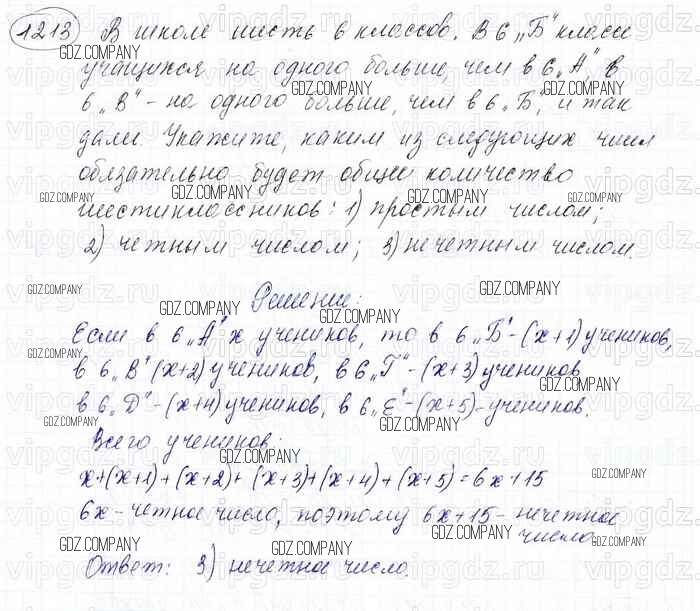 1213 В школе шесть 6 классов. В 6 „Б" классе
учащихся на одного больше, чем в 6 „А", в
6 „В" - на одного больше, чем в 6 „Б", и так
дали. Укажите, каким из следующих чисел
обязательно будет общее количество
шестиклассников: 1) простым числом;
2) четным числом; 3) нечетным числом.
Решение:
Если в 6 „А" x учеников, то в 6 „Б" - (x+1) учеников,
в 6 „В" (x+2) учеников, в 6 „Г" - (x+3) учеников
в 6 „Д" - (x+4) учеников, в 6 „Е" - (x+5) - учеников.
Всего учеников:
x+(x+1)+(x+2)+(x+3)+(x+4)+(x+5)=6x+15
6x - четное число, поэтому 6x+15 - нечетное
число.
Ответ: 3) нечетное число.